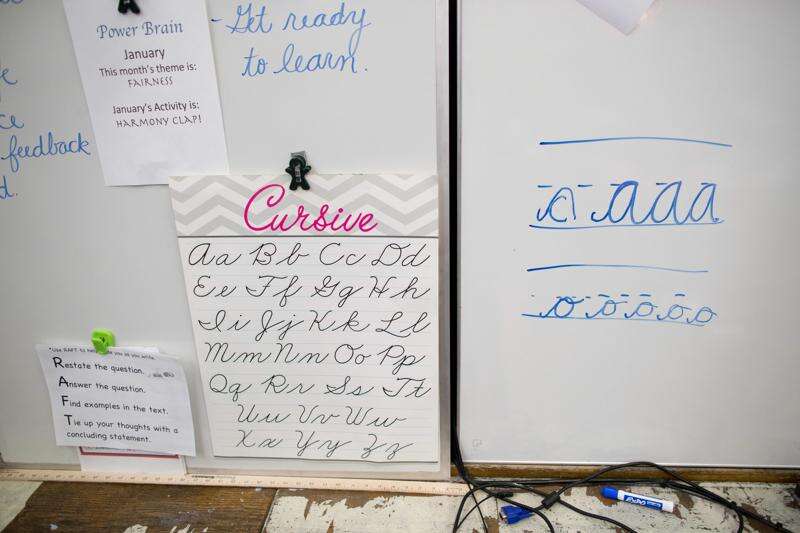 feedback
d.
Power Brain
January
This month's theme is:
FAIRNESS
January's Activity is:
HARMONY CLAP!
- Get ready
to learn.
Cursive
Aa Bb Cc Dd
Ee Ff Gg Hh
Ii Jj Kk Ll
Mm Nn Oo Pp
Qq Rr Ss Tt
Uu Vv Ww
Xx Yy Zz
Restate the question.
Answer the question.
Find examples in the text.
Tie up your thoughts with a
concluding statement.
a a a a
o o o o o
EXPO